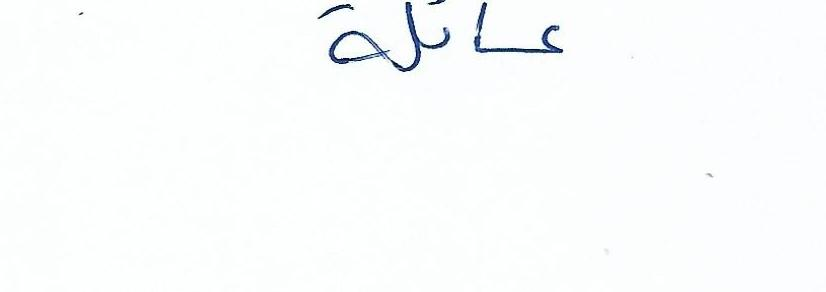 عائلة